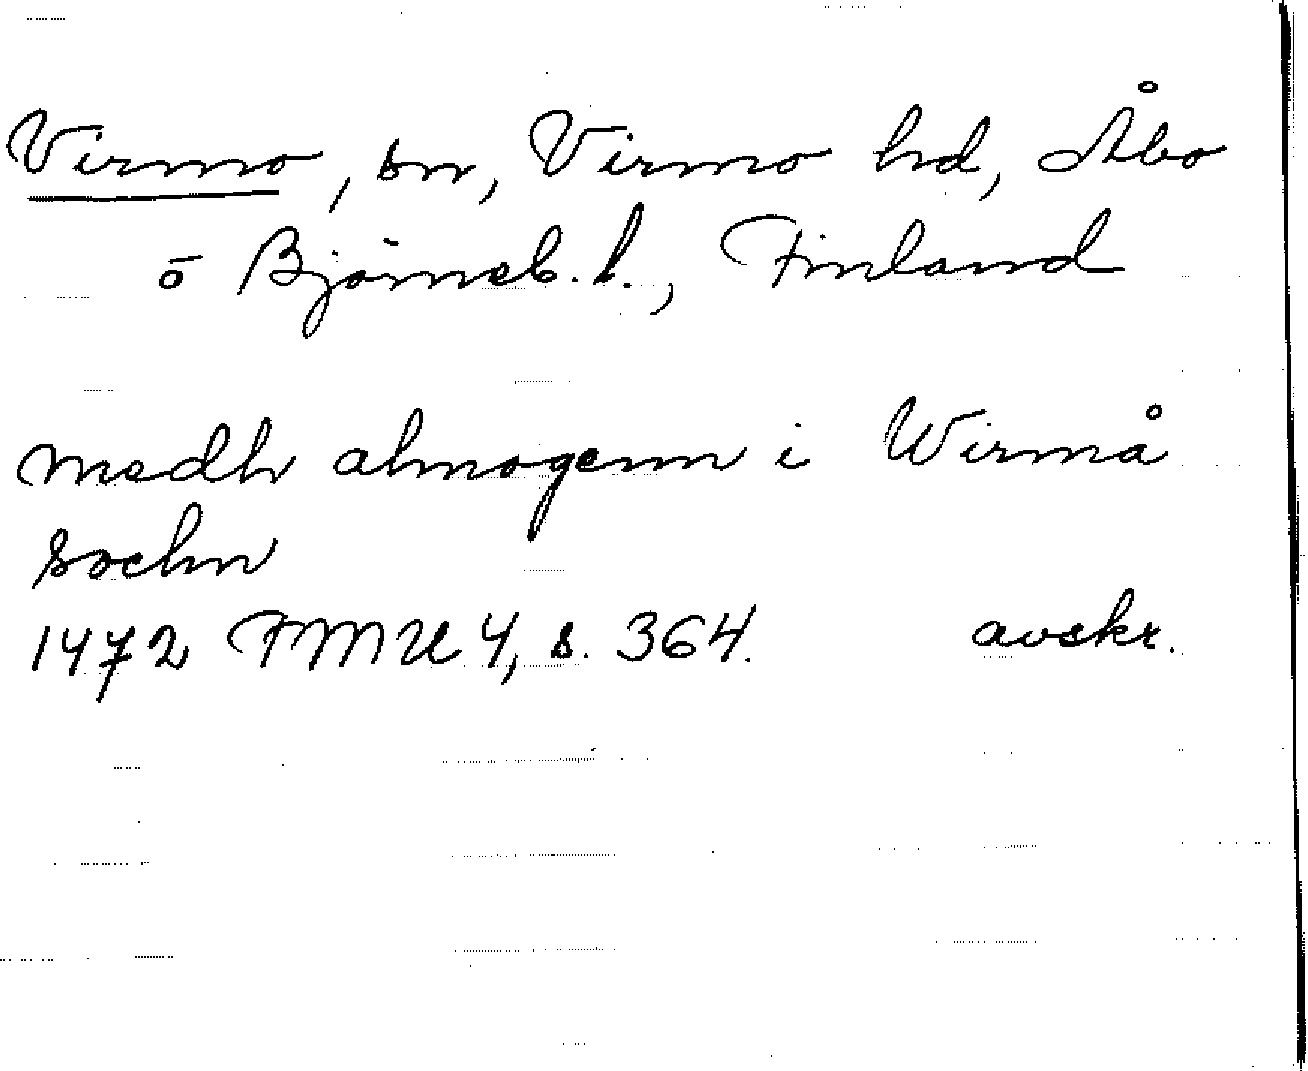 Virmo, sn, Virmo hd, Åbo
o Björneb. l., Finland
medh almogenn i Wirmå
sochn
1472 FMU 4, s. 364. avskr.